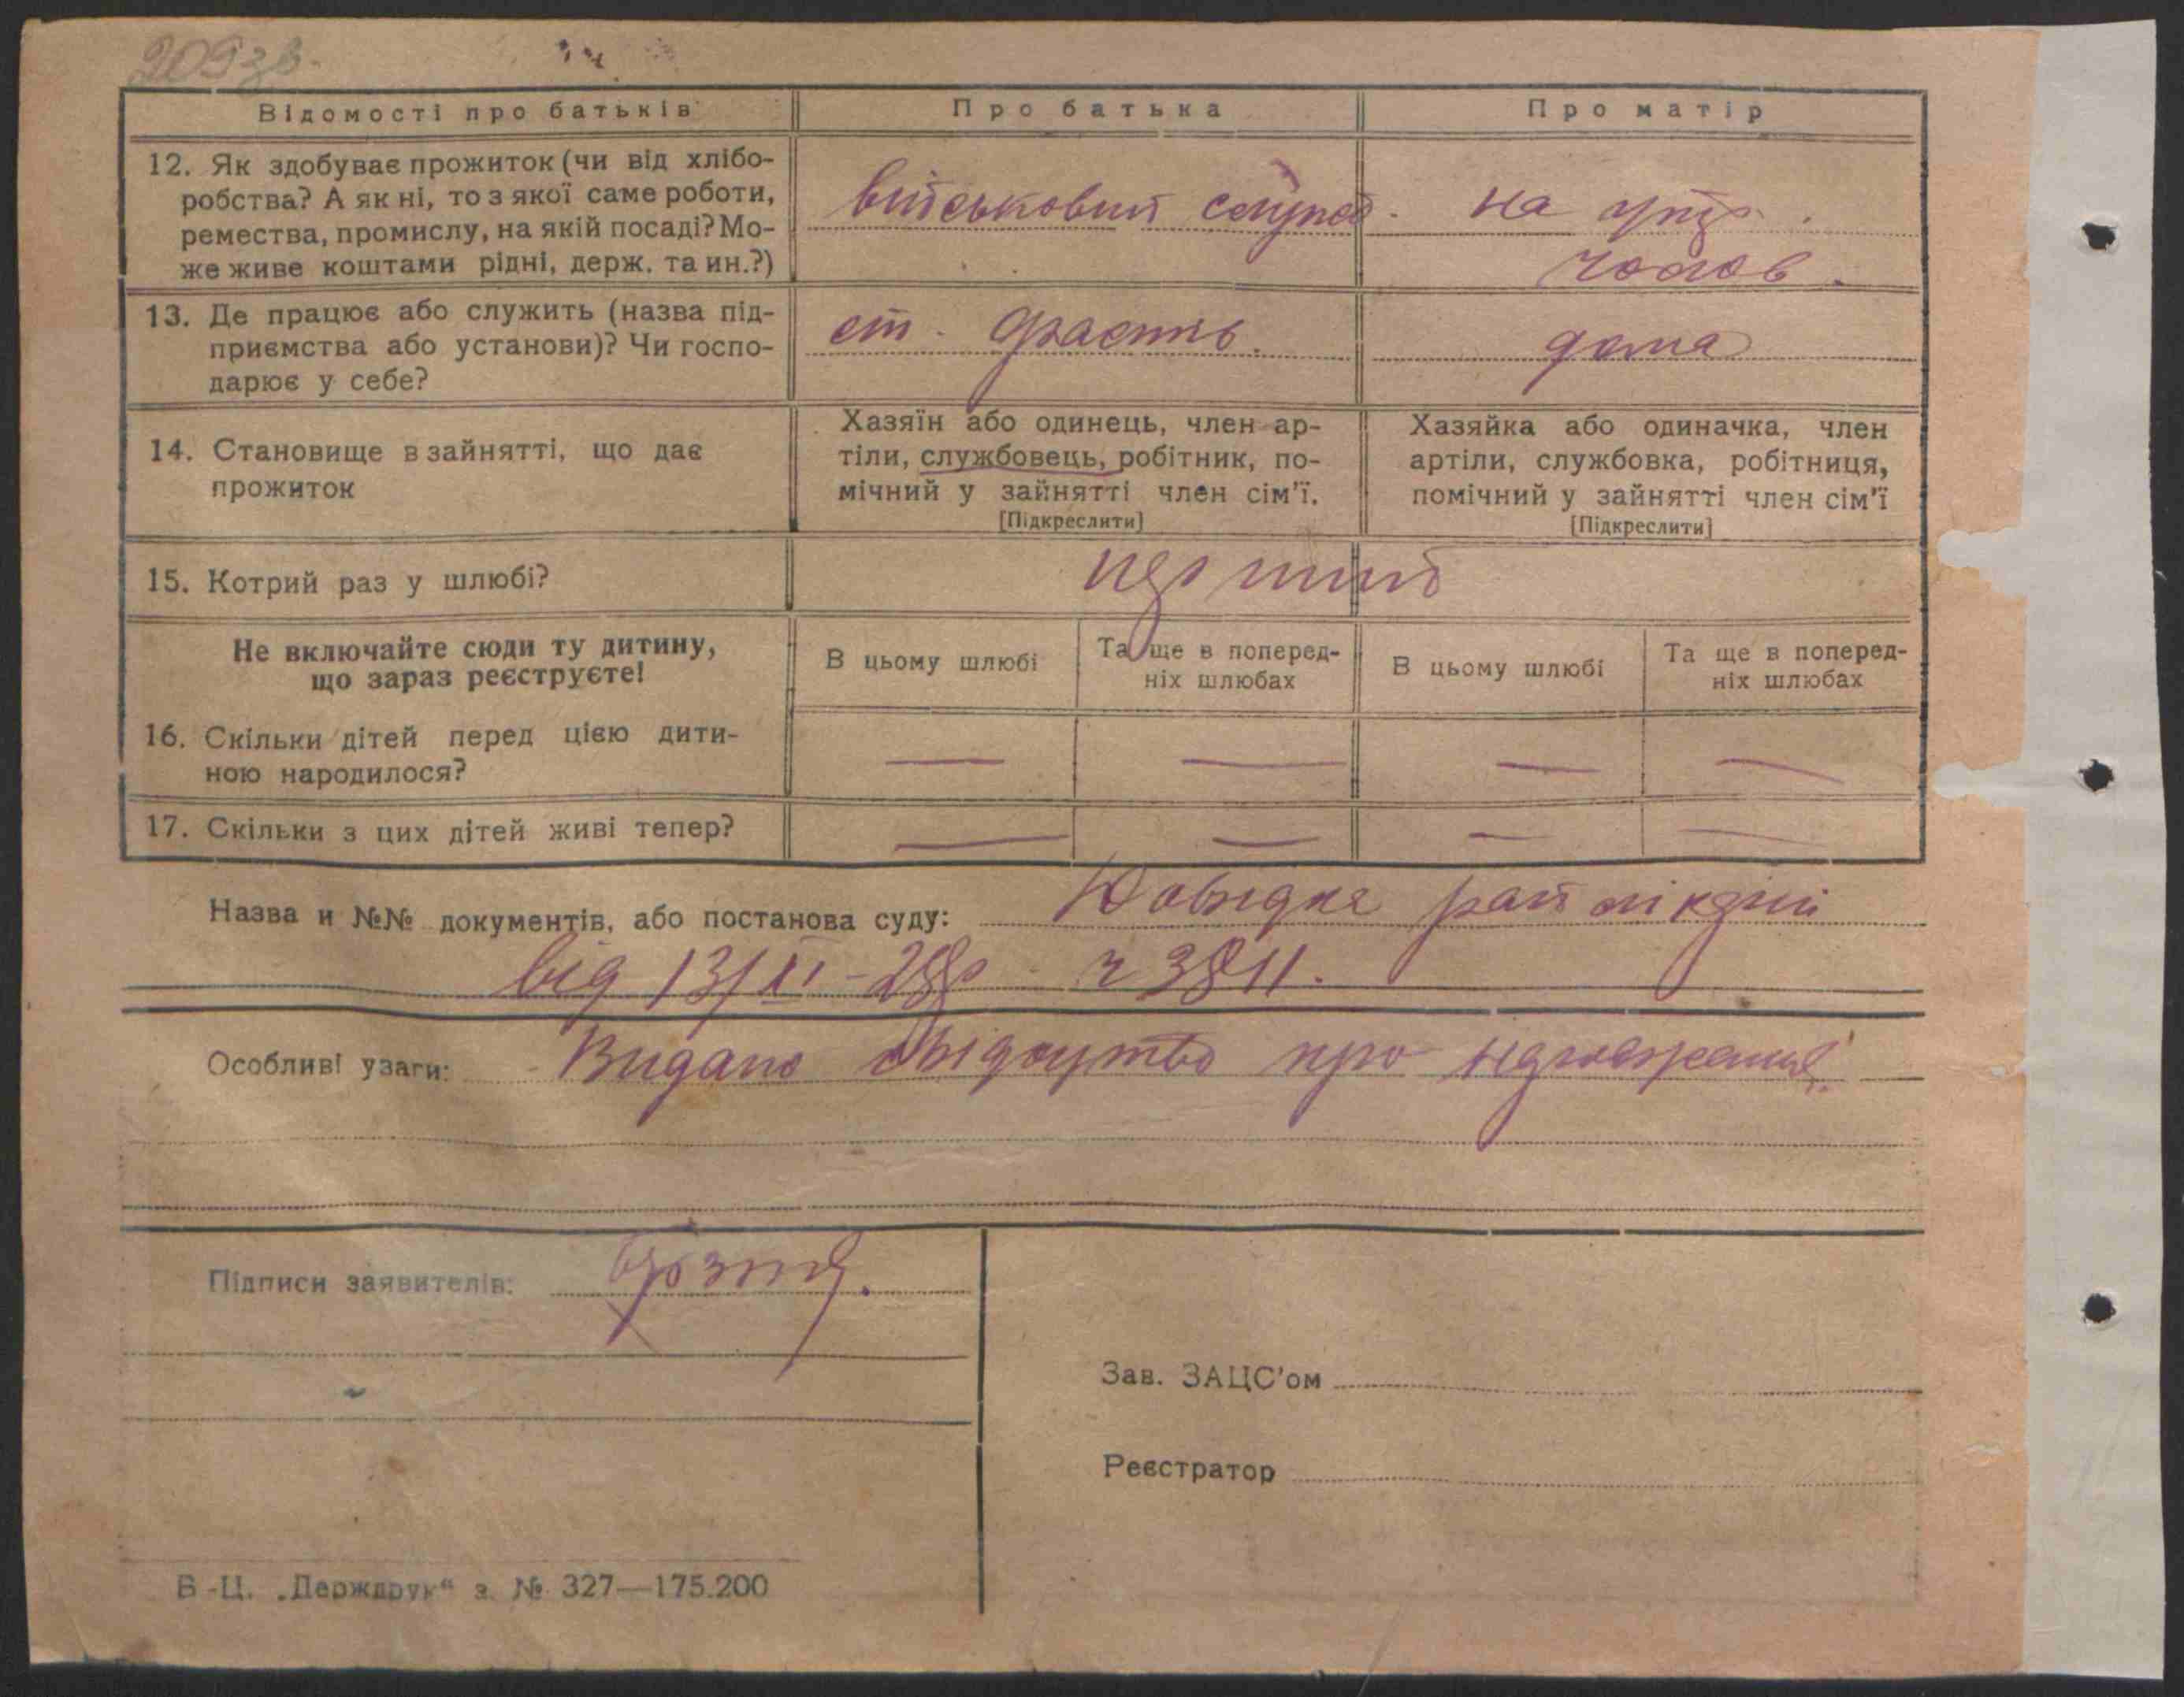 209зв.
Відомості про батьків
Про батька
Про матір
12. Як здобуває прожиток (чи від хлібо-
робства? А як ні, то з якої саме роботи,
ремества, промислу, на якій посаді? Мо-
же живе коштами рідні, держ. та ин.?)
військовий служб.
на утр.
чолов.
13. Де працює або служить (назва під-
приємства або установи)? Чи госпо-
дарює у себе?
ст. Фастів.
дома
14. Становище в зайнятті, що дає
прожиток
Хазяїн або одинець, член ар-
тіли, службовець, робітник, по-
мічний у зайнятті член сім'ї.
[Підкреслити]
Хазяйка або одиначка, член
артіли, службовка, робітниця,
помічний у зайнятті член сім'ї
[Підкреслити]
15. Котрий раз у шлюбі?
перший
Не включайте сюди ту дитину,
що зараз реєструєте!
В цьому шлюбі
Та ще в поперед-
ніх шлюбах
В цьому шлюбі
Та ще в поперед-
ніх шлюбах
16. Скільки дітей перед цією дити-
ною народилося?
— — — —
17. Скільки з цих дітей живі тепер?
— — — —
Назва и №№ документів, або постанова суду: Довідка райлікарні
від 13/XI-28р ч 3811.
Особливі узаги: Видано свідоцтво про народження.
Підписи заявителів:
Зав. ЗАЦС'ом
Реєстратор
В-Ц. „Держдрук“ з. № 327—175.200